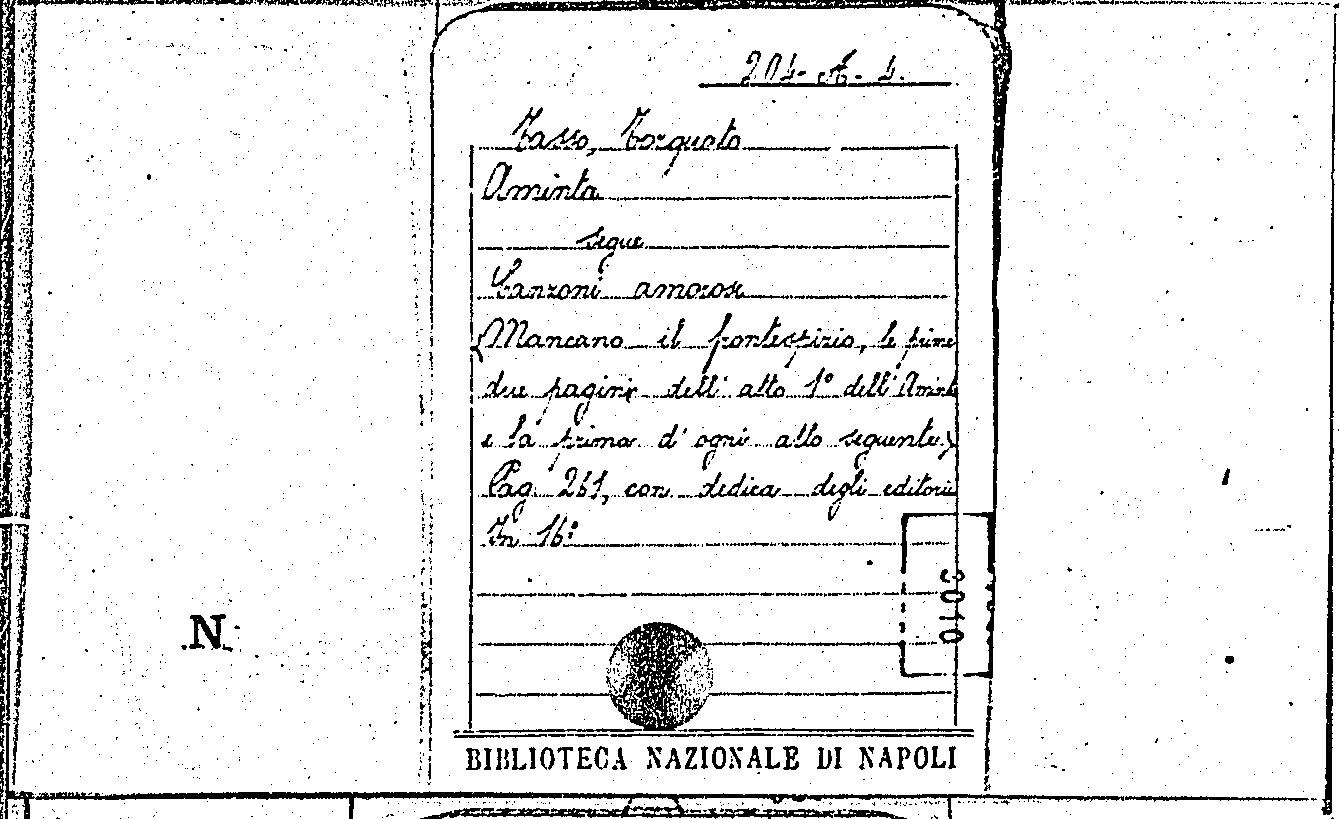 204-A-4.
Tasso, Torquato
Aminta
segue
Canzoni amorose
(Mancano il frontespizio, le prime
due pagine dell'atto 1º dell'Aminta
e la prima d'ogni atto seguente)
Pag. 261, con dedica degli editori
In 16º
3010
N.
BIBLIOTECA NAZIONALE DI NAPOLI